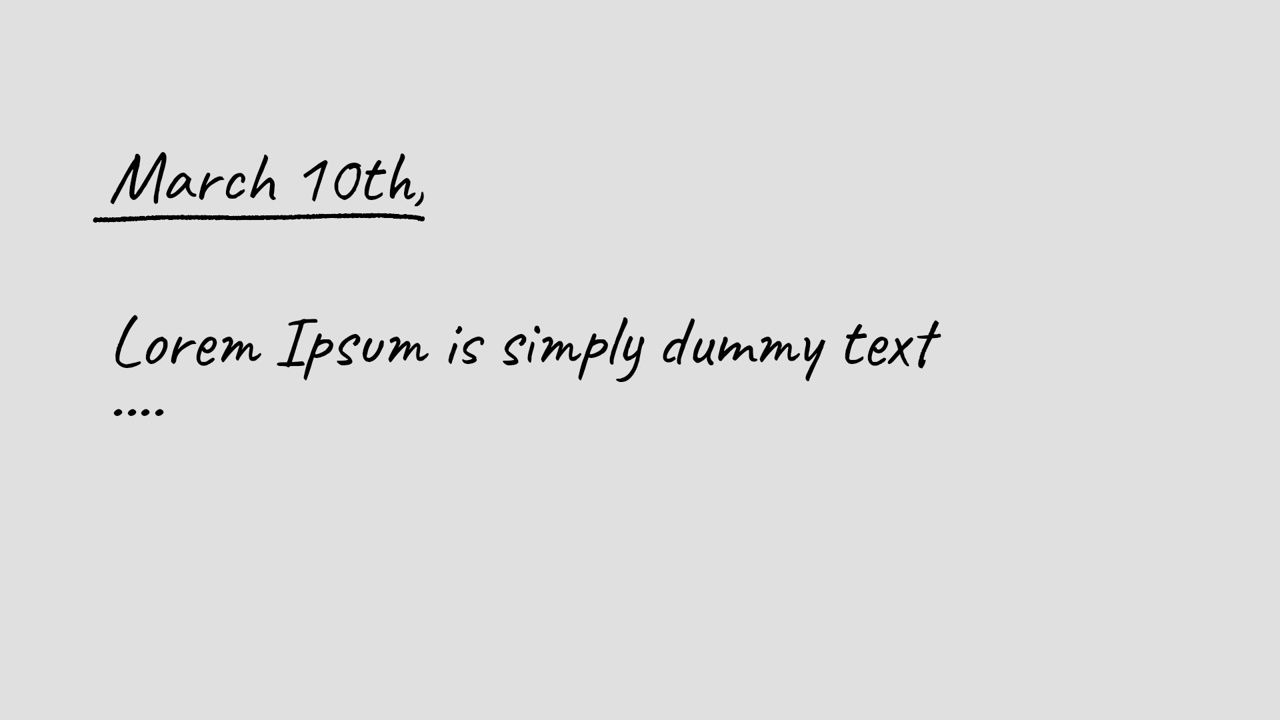 March 10th,
Lorem Ipsum is simply dummy text
....